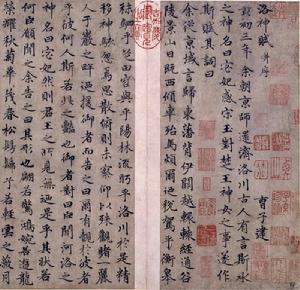 洛神賦 并序
曹子建
黃初三年余朝京師還濟洛川古人有言斯水
之神名曰宓妃感宋玉對楚王神女之事遂作
斯賦其詞曰
余從京域言歸東藩背伊闕越轘轅經通谷
陵景山日既西傾車殆馬煩爾迺稅駕乎蘅皋
秣駟乎芝田容與乎陽林流眄乎洛川於是精
移神駭忽焉思散俯則未察仰以殊觀睹一麗
人于巖之畔迺援御者而告之曰爾有覿於彼者
乎彼何人斯若此之豔也御者對曰臣聞河洛之
神名曰宓妃然則君王之所見無迺是乎其狀若
何臣願聞之余告之曰其形也翩若驚鴻婉若遊龍
榮曜秋菊華茂春松髣髴兮若輕雲之蔽月